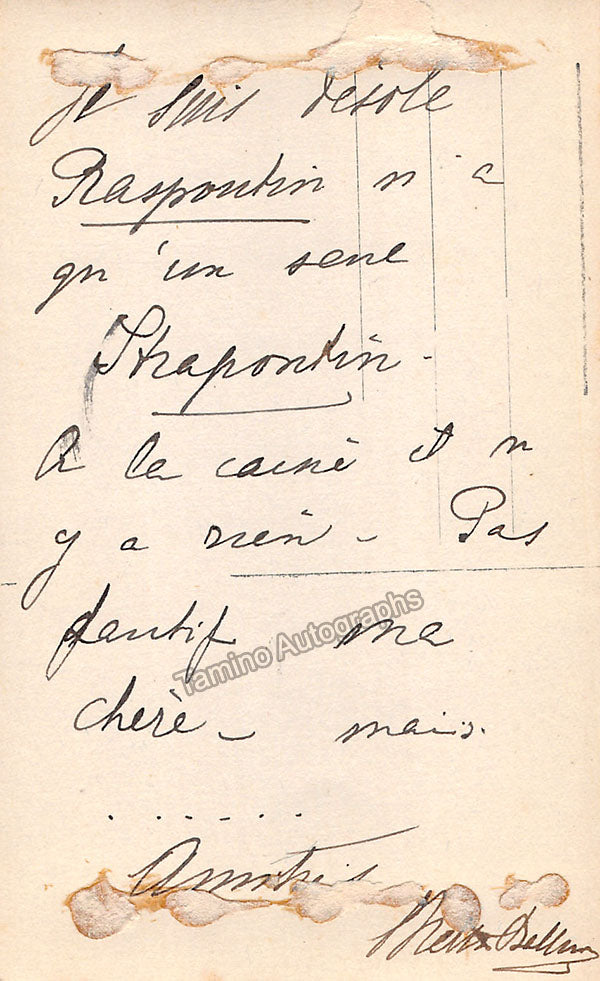 Je suis désolé
Raspontin n'a
qu'un seul
Strapontin -
A la caisse il n
y a rien - Pas
fautif ma
chère - mais
. . . . . .
Amitiés
Tamino Autographs